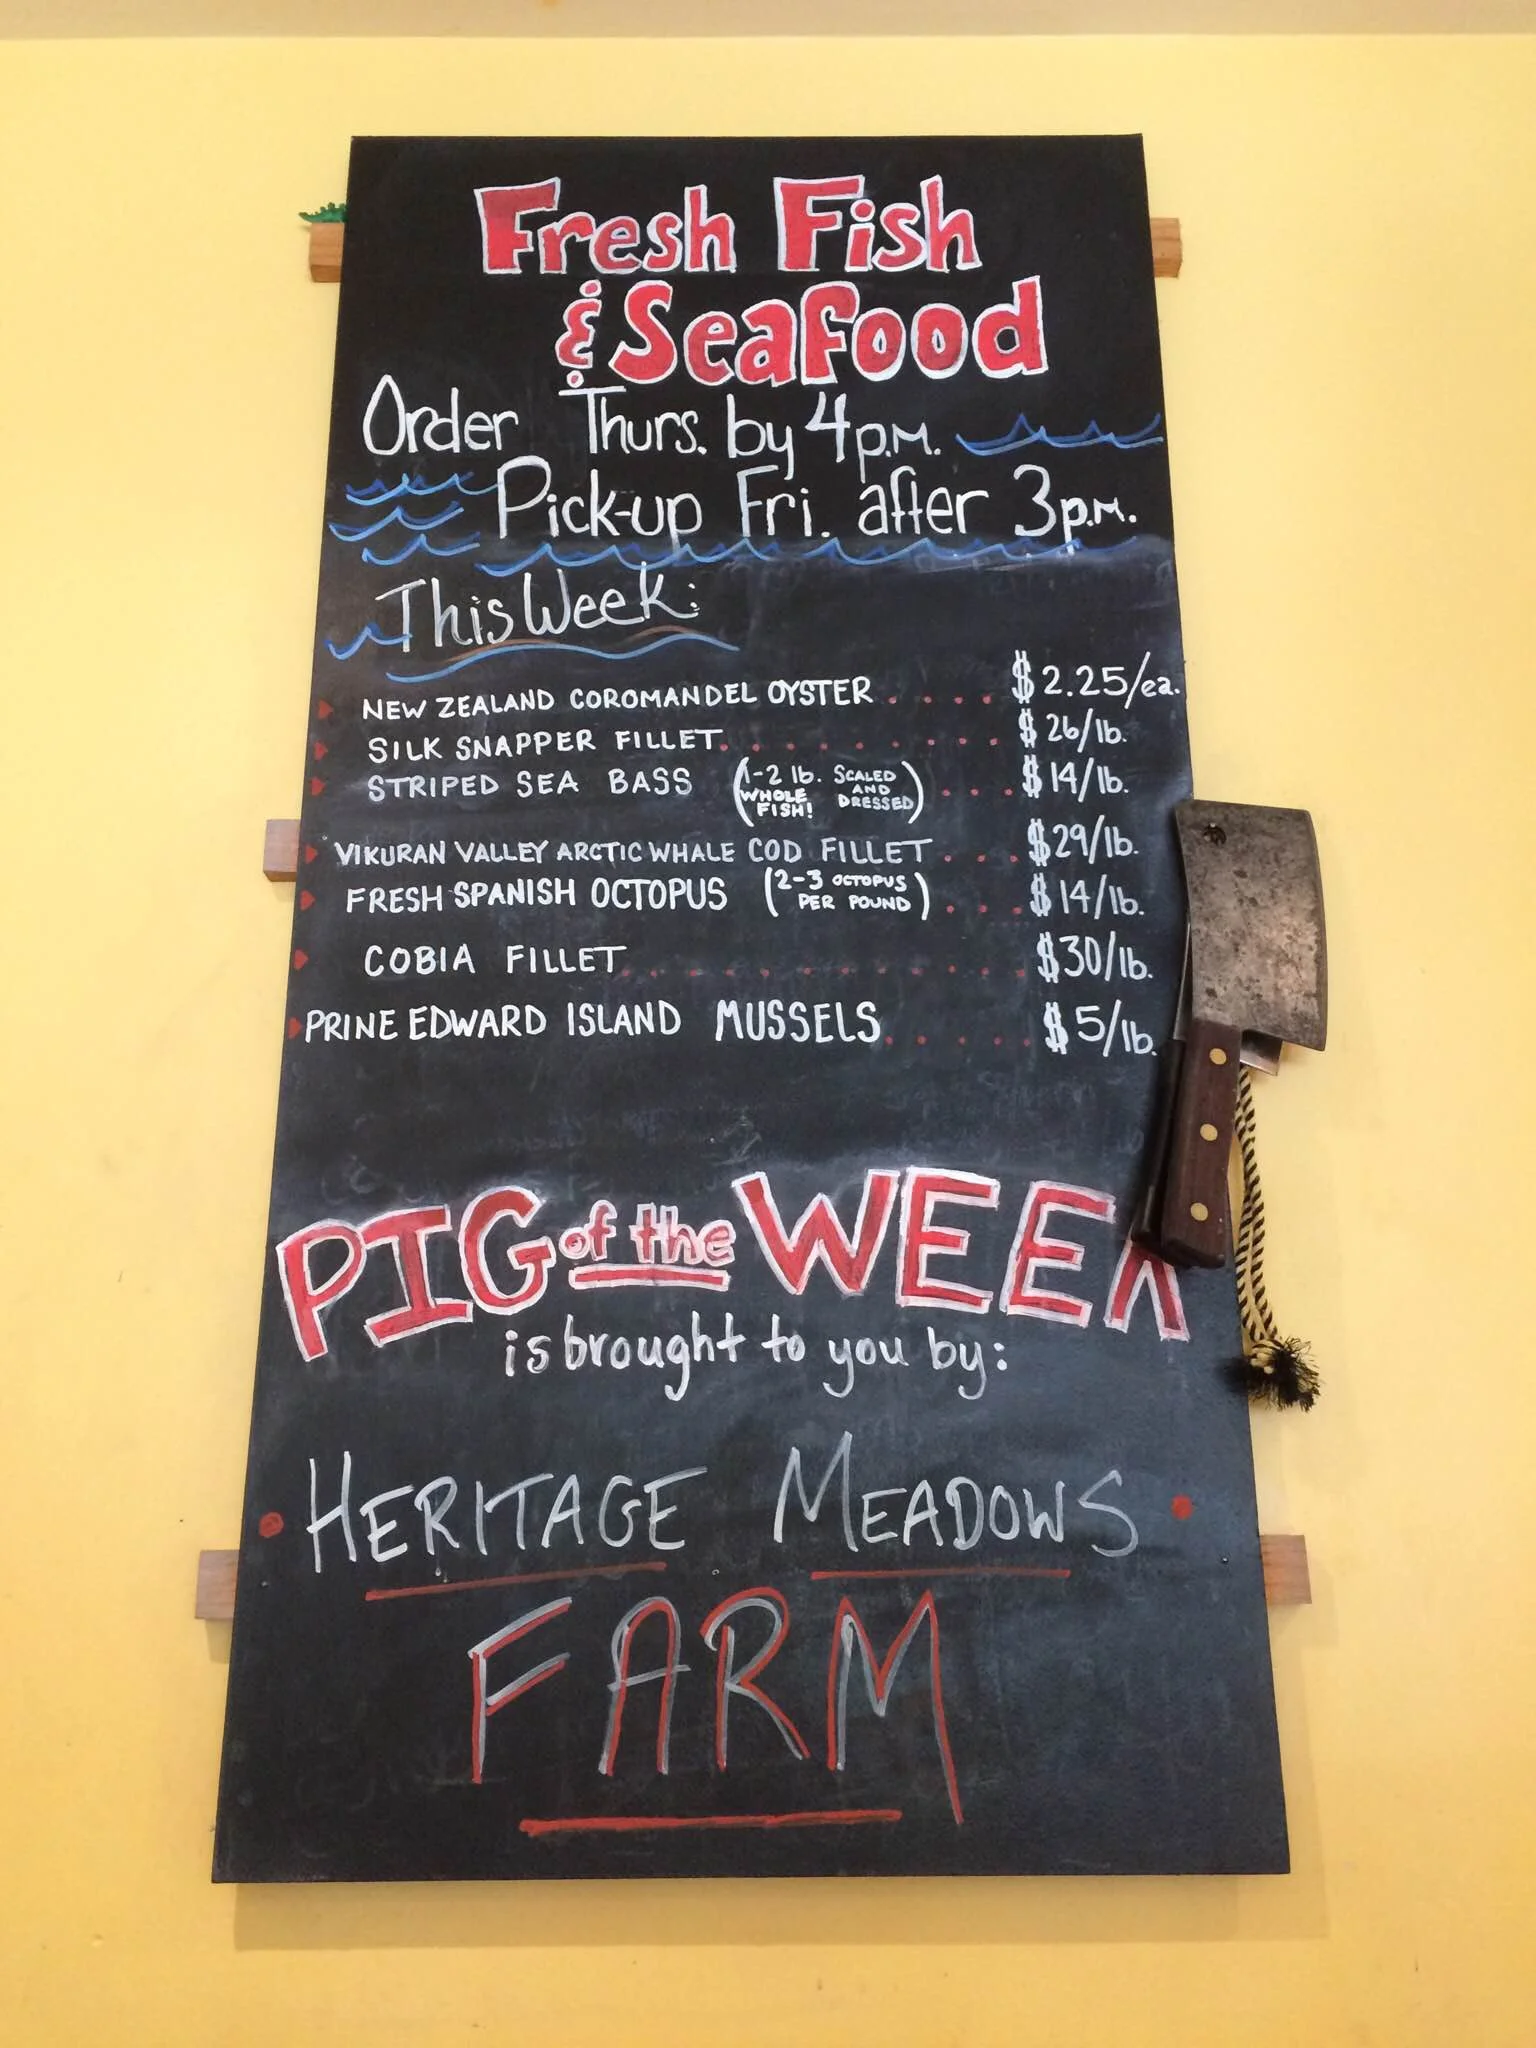 Fresh Fish
& Seafood
Order Thurs. by 4 p.m.
Pick-up Fri. after 3 p.m.
This Week:
NEW ZEALAND COROMANDEL OYSTER . . . . . $2.25/ea.
SILK SNAPPER FILLET . . . . . . . . . $26/lb.
STRIPED SEA BASS (1-2 lb. WHOLE FISH! SCALED AND DRESSED) . . . $14/lb.
VIKURAN VALLEY ARCTIC WHALE COD FILLET . . . $29/lb.
FRESH SPANISH OCTOPUS (2-3 OCTOPUS PER POUND) . . . $14/lb.
COBIA FILLET . . . . . . . . . . . . . $30/lb.
PRINE EDWARD ISLAND MUSSELS . . . . . . $5/lb.
PIG of the WEEK
is brought to you by:
• HERITAGE MEADOWS •
FARM